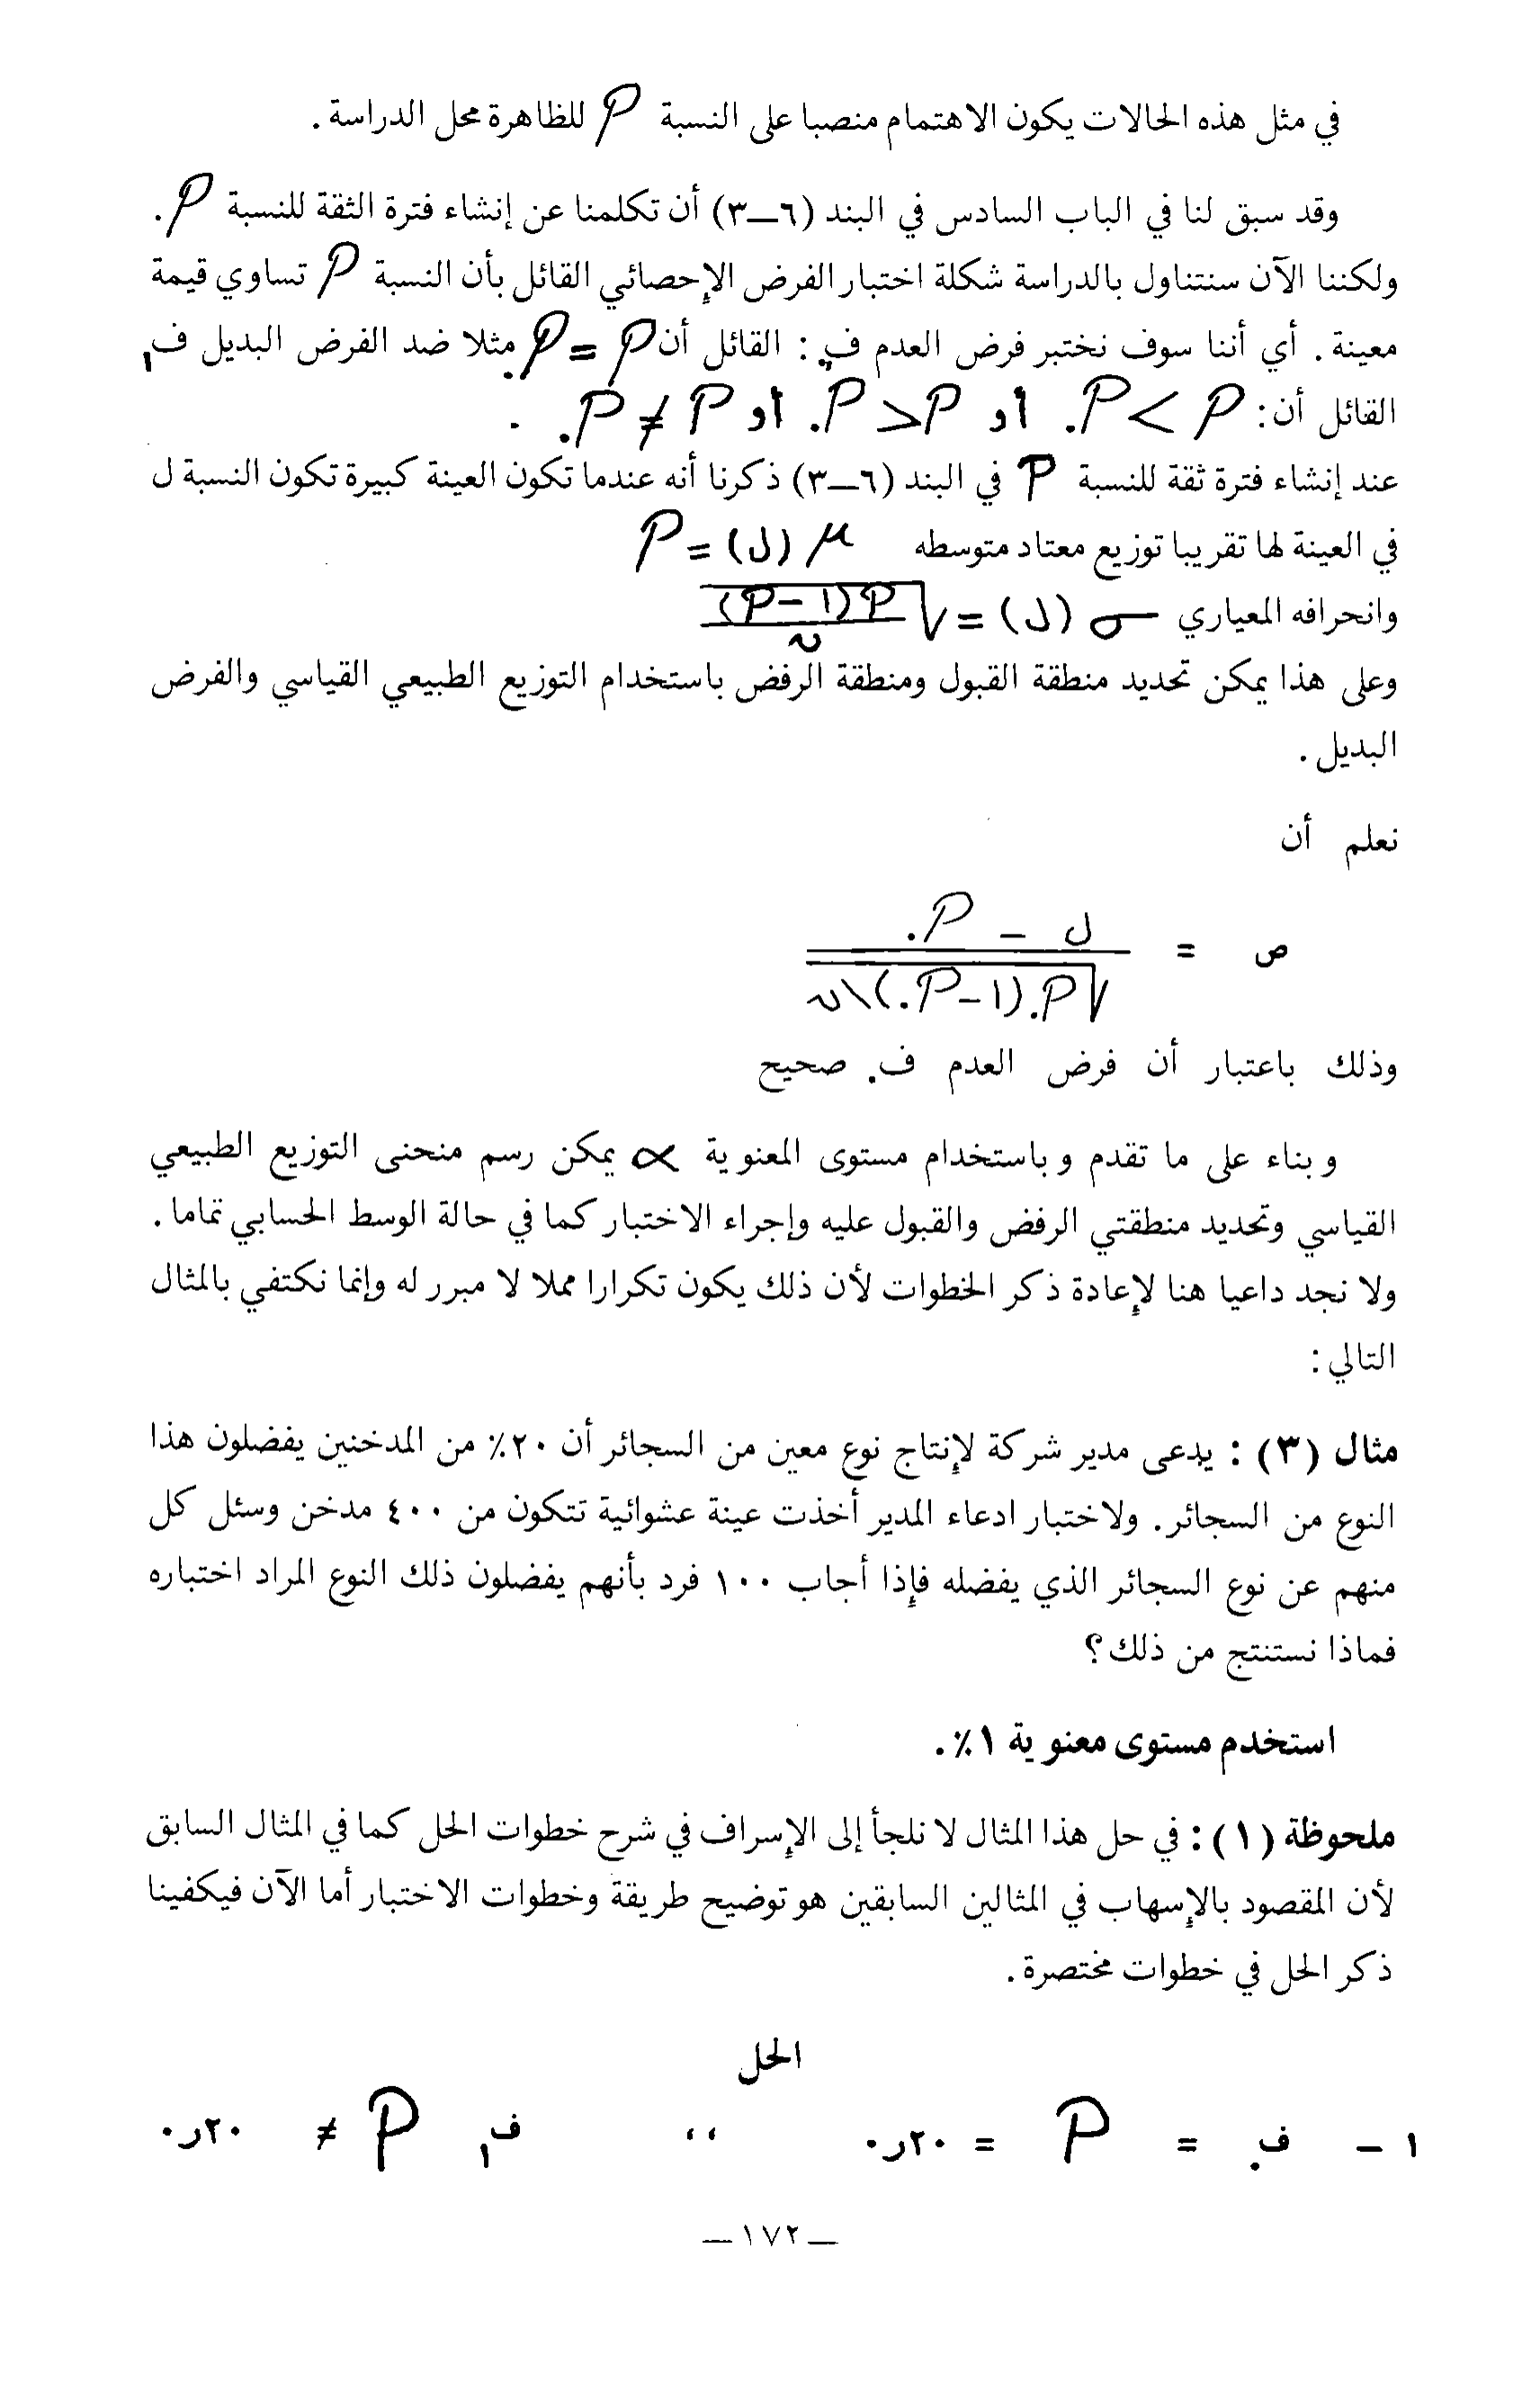 في مثل هذه الحالات يكون الاهتمام منصبا على النسبة P للظاهرة محل الدراسة .
وقد سبق لنا في الباب السادس في البند (٦—٣) أن تكلمنا عن إنشاء فترة الثقة للنسبة P .
ولكننا الآن سنتناول بالدراسة شكلة اختبار الفرض الإحصائي القائل بأن النسبة P تساوي قيمة
معينة . أي أننا سوف نختبر فرض العدم ف. : القائل أن P = P. مثلا ضد الفرض البديل ف١
القائل أن : P > P. أو P < P. أو P ≠ P. .
عند إنشاء فترة ثقة للنسبة P في البند (٦—٣) ذكرنا أنه عندما تكون العينة كبيرة تكون النسبة ل
في العينة لها تقريبا توزيع معتاد متوسطه μ (ل) = P
وانحرافه المعياري σ (ل) = √P(١-P)/ن
وعلى هذا يمكن تحديد منطقة القبول ومنطقة الرفض باستخدام التوزيع الطبيعي القياسي والفرض
البديل .
نعلم أن
ل – P.
ص =
√P.(١-P.)\ن
وذلك باعتبار أن فرض العدم ف. صحيح
وبناء على ما تقدم وباستخدام مستوى المعنوية α يمكن رسم منحنى التوزيع الطبيعي
القياسي وتحديد منطقتي الرفض والقبول عليه وإجراء الاختبار كما في حالة الوسط الحسابي تماما .
ولا نجد داعيا هنا لإعادة ذكر الخطوات لأن ذلك يكون تكرارا مملا لا مبرر له وإنما نكتفي بالمثال
التالي :
مثال (٣) : يدعى مدير شركة لإنتاج نوع معين من السجائر أن ٢٠٪ من المدخنين يفضلون هذا
النوع من السجائر. ولاختبار ادعاء المدير أخذت عينة عشوائية تتكون من ٤٠٠ مدخن وسئل كل
منهم عن نوع السجائر الذي يفضله فإذا أجاب ١٠٠ فرد بأنهم يفضلون ذلك النوع المراد اختباره
فماذا نستنتج من ذلك ؟
استخدم مستوى معنوية ١٪ .
ملحوظة (١) : في حل هذا المثال لا نلجأ إلى الإسراف في شرح خطوات الحل كما في المثال السابق
لأن المقصود بالإسهاب في المثالين السابقين هو توضيح طريقة وخطوات الاختبار أما الآن فيكفينا
ذكر الحل في خطوات مختصرة .
الحل
١ – ف. = P = ٢٠ر٠ ،، ف١ P ≠ ٢٠ر٠
— ١٧٢ —